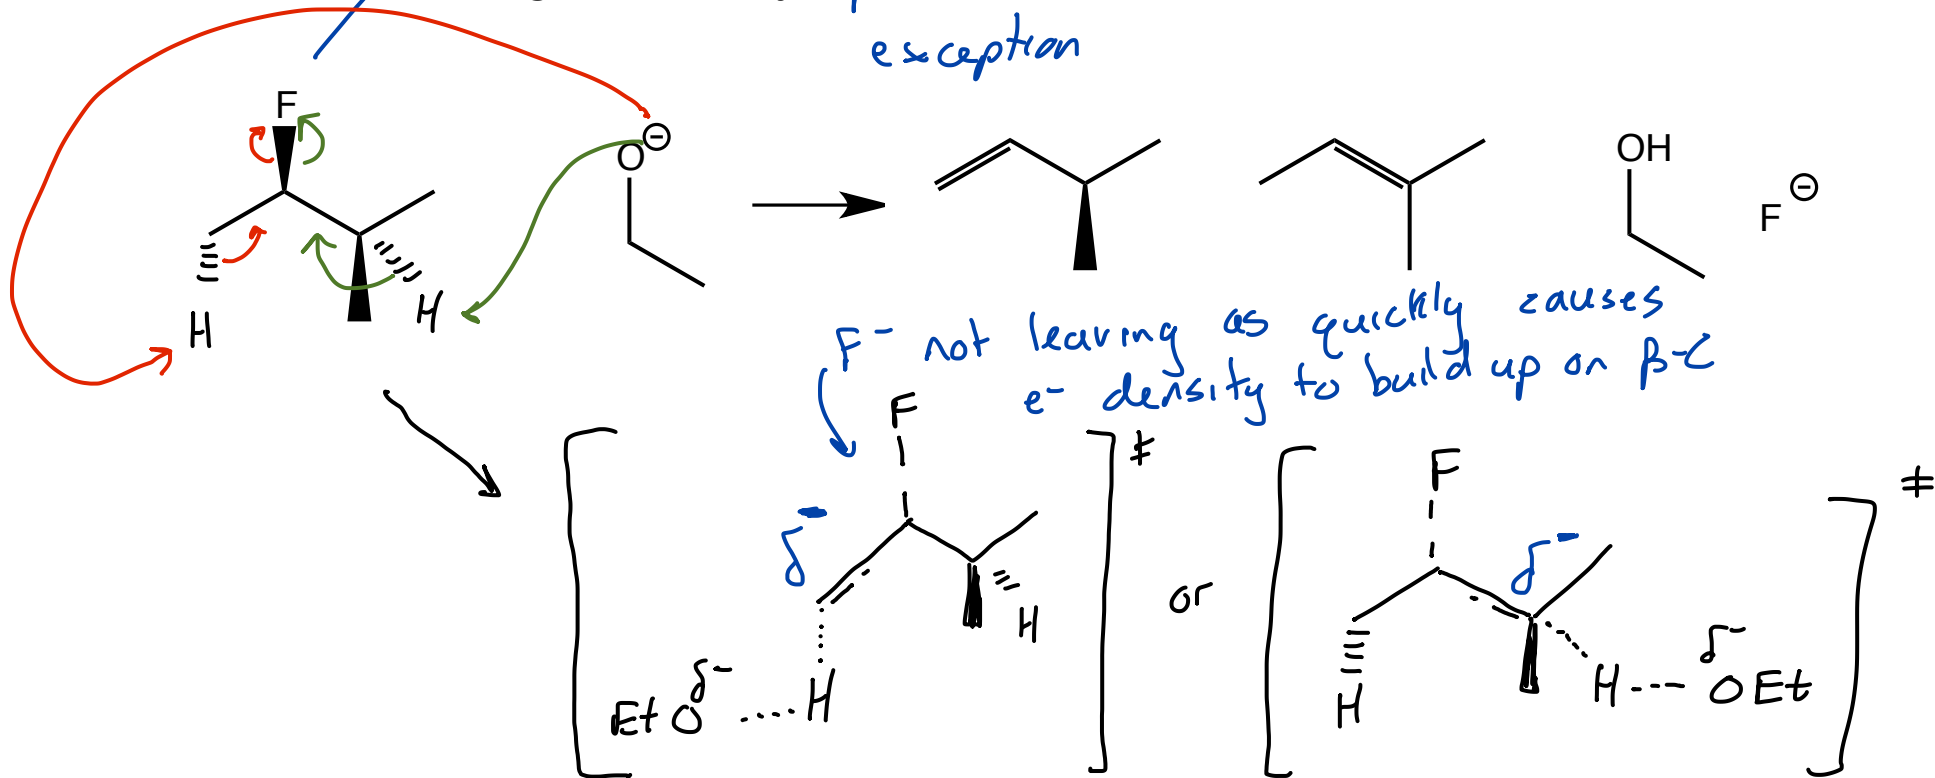 exception
F
O⊖
OH
F⊖
H
H
F⁻ not leaving as quickly causes
e⁻ density to build up on β-C
F
F
δ⁻
δ⁻
or
H
δ⁻
δ⁻
EtO ····· H
H
H --- OEt
‡
‡